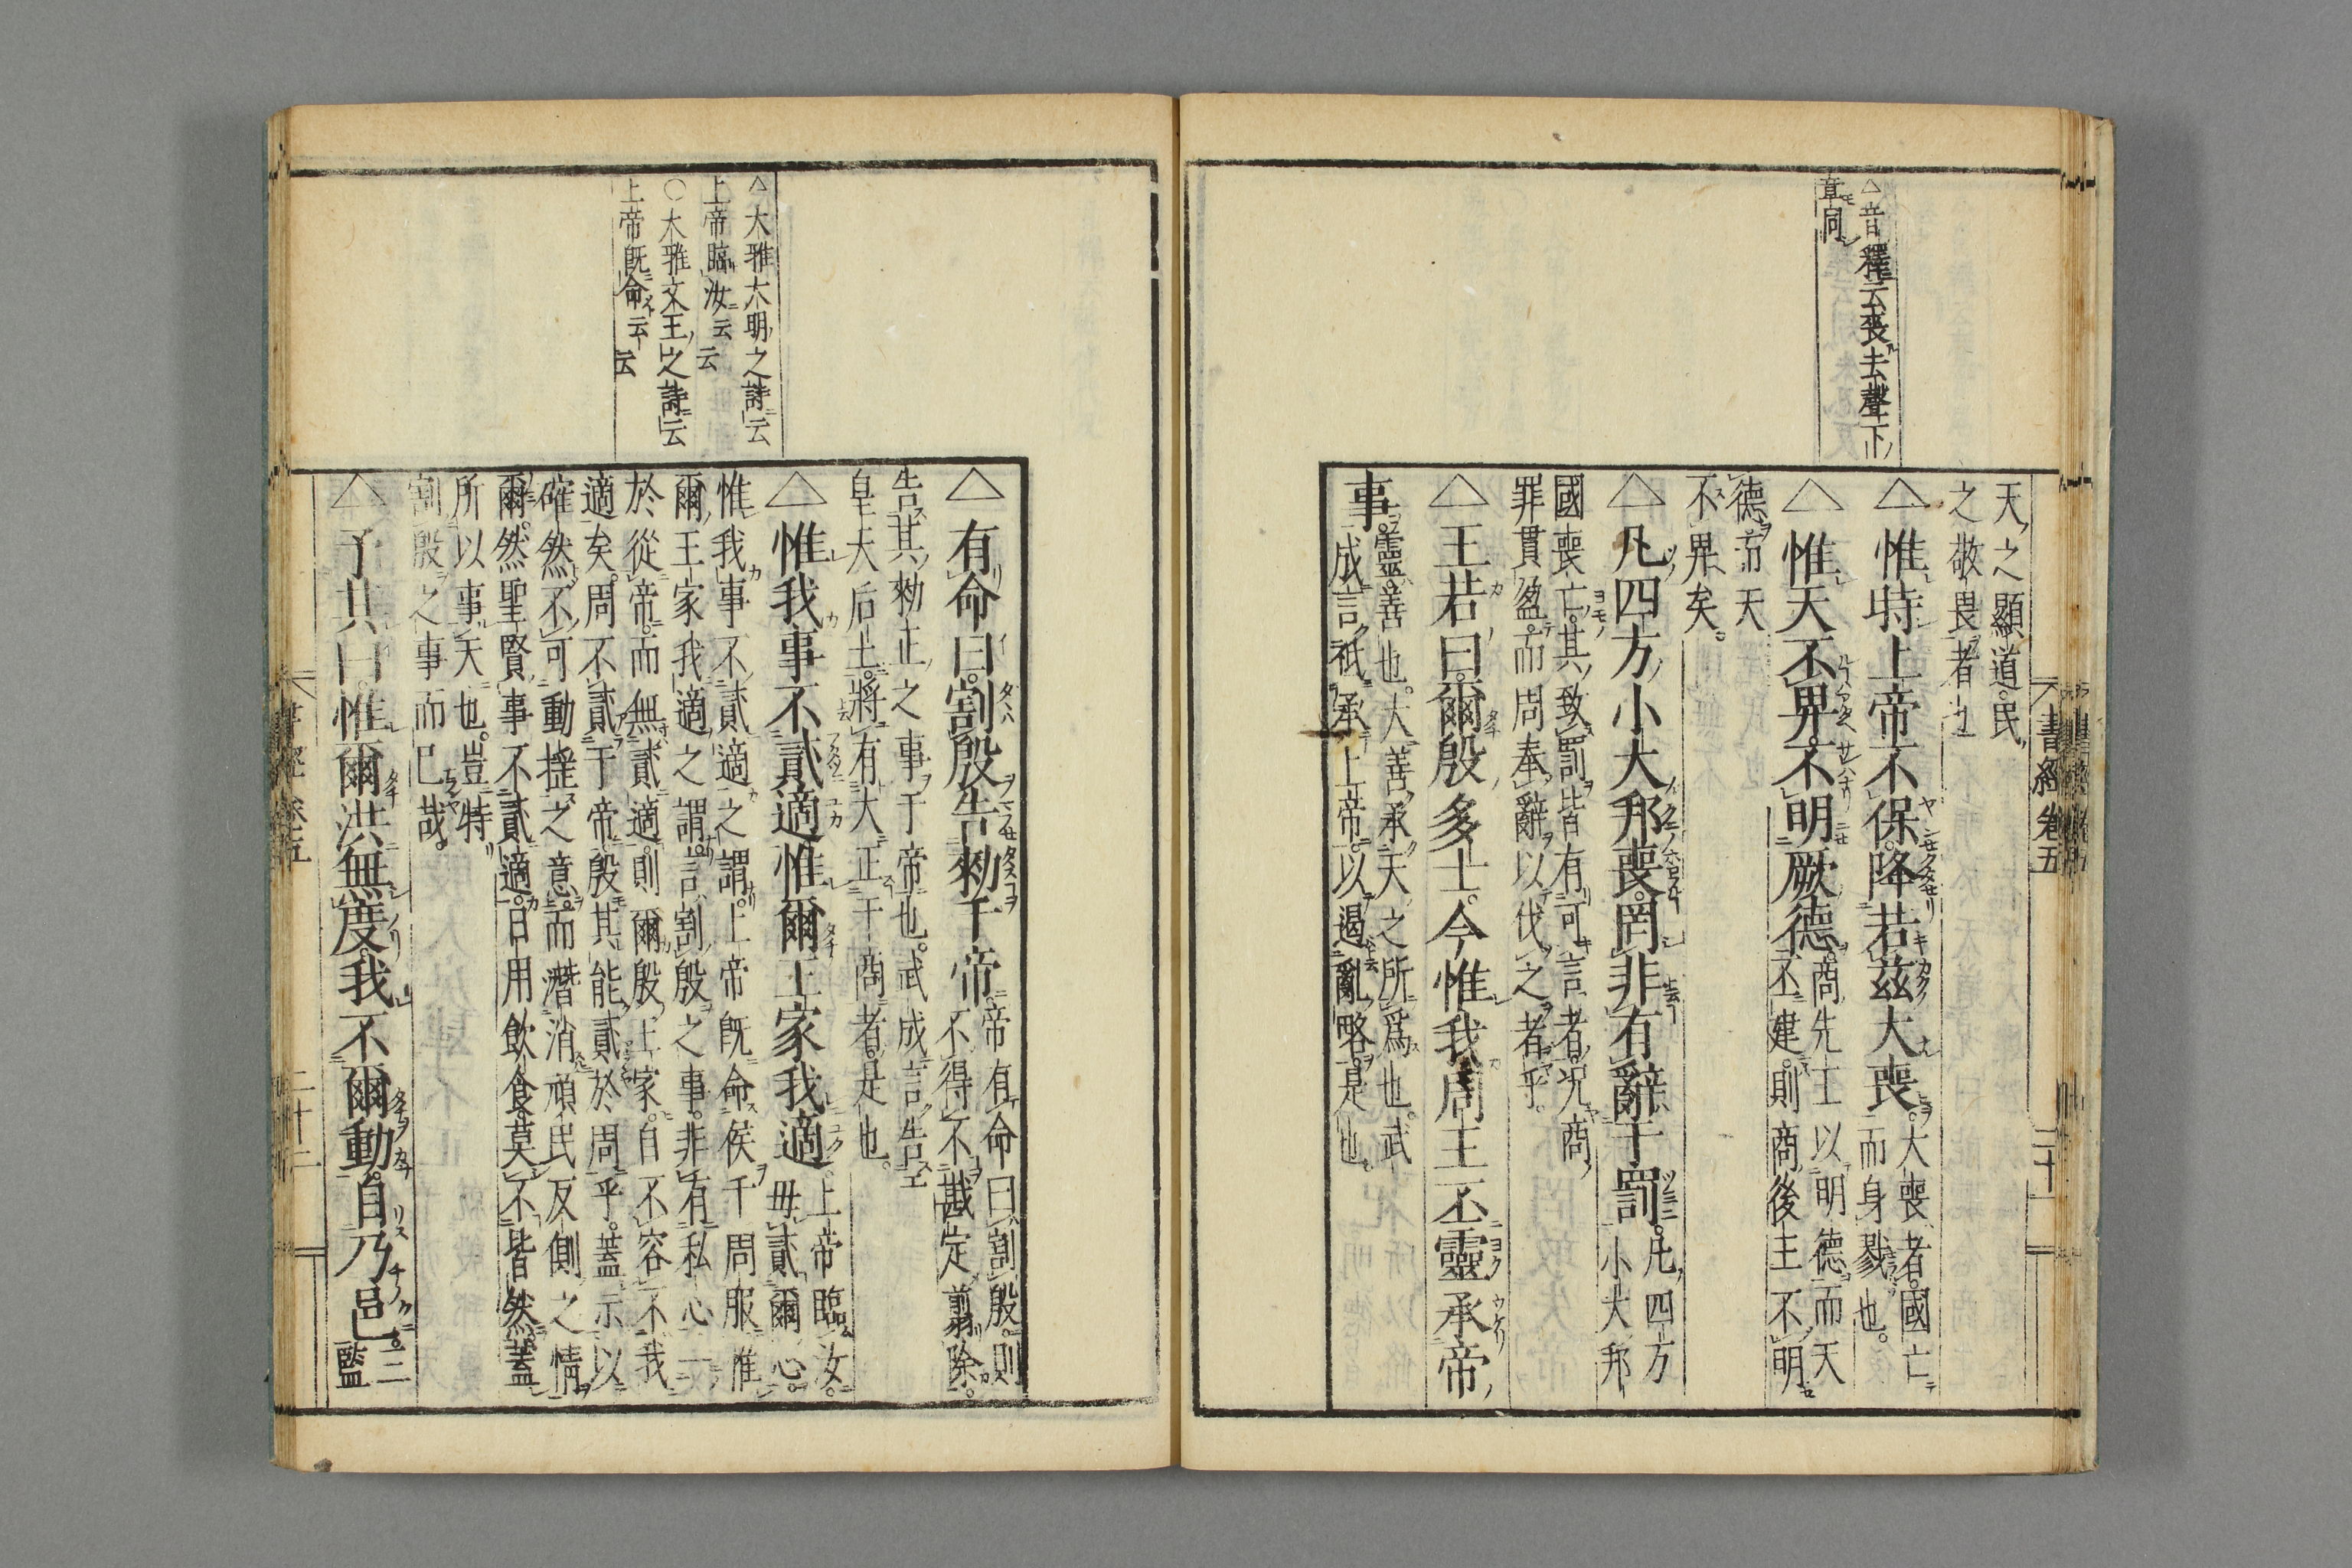 △音釋云喪去聲下
章同
天之顯道民
之敬畏者也
△惟時上帝不保降若茲大喪。大喪者。國亡
而身戮也。
△惟天不畀。不明厥德。商先王以明德而天
丕建。則商後王不明
德而天
不畀矣。
△凡四方小大邦喪。罔非有辭于罰。凡四方
小大邦
國喪亡。其致罰皆有可言者。况商
罪貫盈。而周奉辭以伐之者乎。
△王若曰。爾殷多士。今惟我周王丕靈承帝
事。靈善也。大善承天之所爲也。武
成言祗承上帝。以遏亂略。是也
書經卷五
二十一
△大雅大明之詩云
上帝臨汝云云
○大雅文王之詩云
上帝既命云云
△有命曰。割殷告勑于帝。帝有命曰。割殷。則
不得不戡定翦除。
告其勑正之事于帝也。武成言。告
皇天后土。將有大正于商者。是也。
△惟我事不貳適惟爾王家我適。上帝臨汝。
毋貳爾心。
惟我事不貳適之謂。上帝既命侯于周服惟
爾王家我適之謂。言割殷之事。非有私心一
於從帝。而無貳適。則爾殷王家。自不容不我
適矣。周不貳于帝。殷其能貳於周乎。蓋示以
確然不可動搖之意。而潛消頑民反側之情
爾。然聖賢事不貳適。日用飲食。莫不皆然。蓋
所以事天也。豈特
割殷之事而已哉。
△予其曰。惟爾洪無度。我不爾動。自乃邑。三
監
書經卷五
二十二